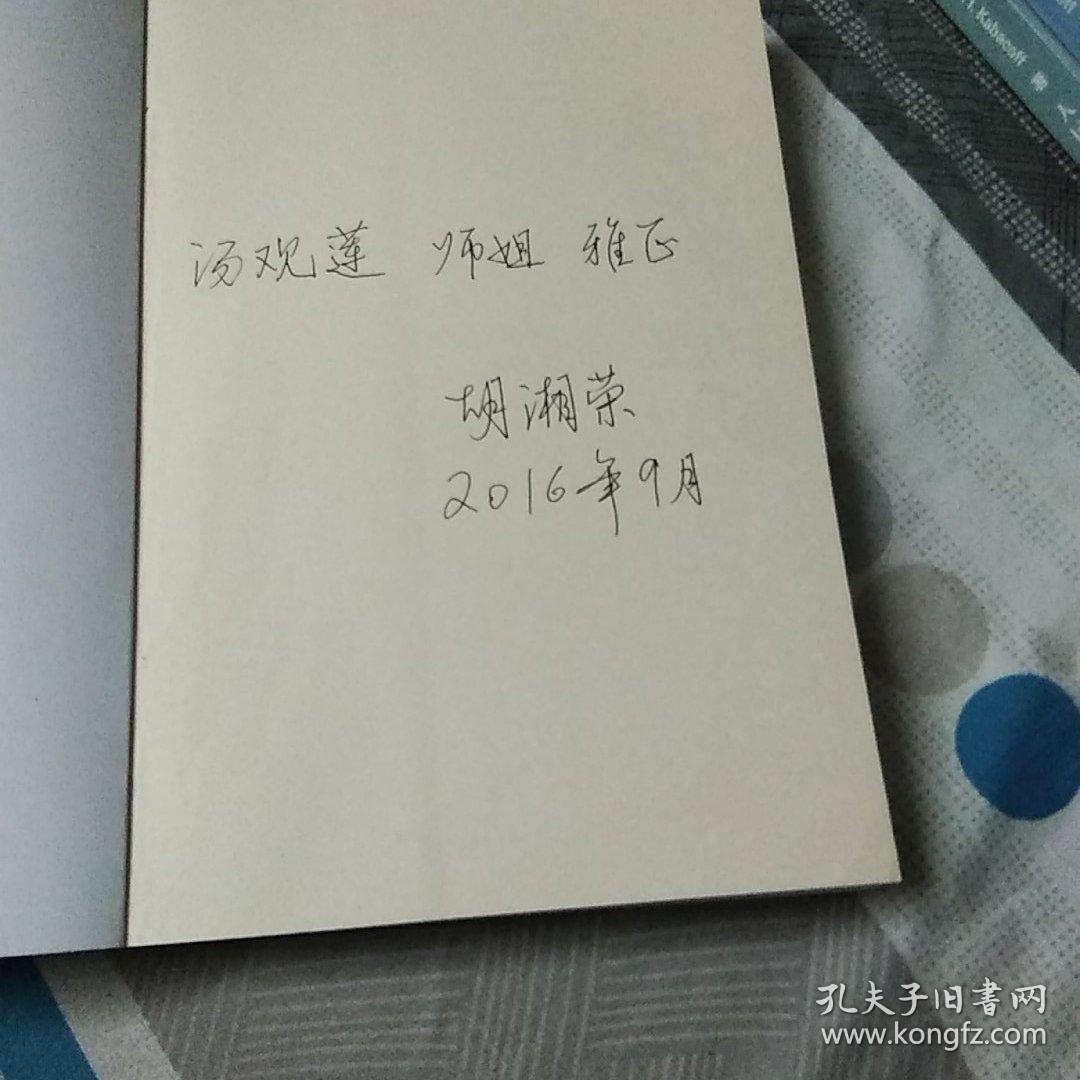 汤观莲 师姐 雅正
胡湘荣
2016年9月
Kabacoff 著 人
孔夫子旧書网
www.kongfz.com